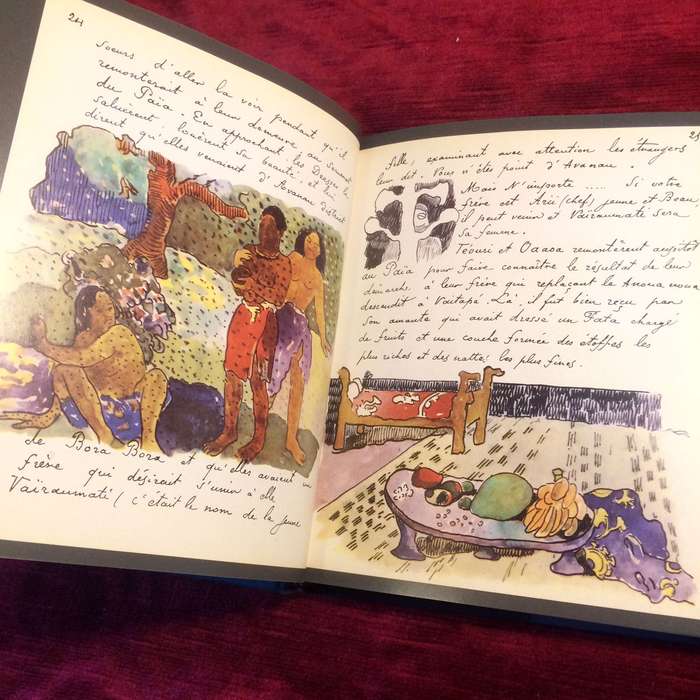 24
Soeurs d'aller la voir pendant qu'il
remonterait à leur demeure au Sommet
du Païa. En approchant les Déesses la
saluèrent, louèrent sa beauté et lui
dirent qu'elles venaient d'Avanau, district
de Bora Bora et qu'elles avaient un
frère qui désirait s'unir à elle
Vaïraumati (c'était le nom de la jeune
25
fille, examinant avec attention les étrangers
leur dit. Vous n'êtes point d'Avanau.
Mais N'importe .... Si votre
frère est Arii (chef) jeune et Beau,
il peut venir et Vaïraumati Sera
Sa femme.
Téouri et Oaaoa remontèrent aussitôt
au Païa pour faire connaître le résultat de leur
démarche à leur frère qui replaçant le Anoua noua
descendit à Vaïtapé. Là, il fut bien reçu par
Son amante qui avait dressé un Fata chargé
de fruits et une couche formée des étoffes les
plus riches et des nattes les plus fines.